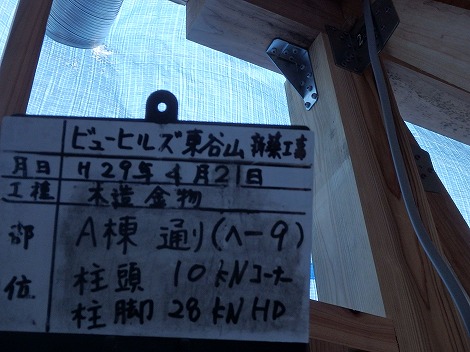 ビューヒルズ東谷山 新築工事
月日 H29年4月21日
工種 木造金物
部位 A棟 通り(へ-9)
柱頭 10kNコーナー
柱脚 28kN HD
2